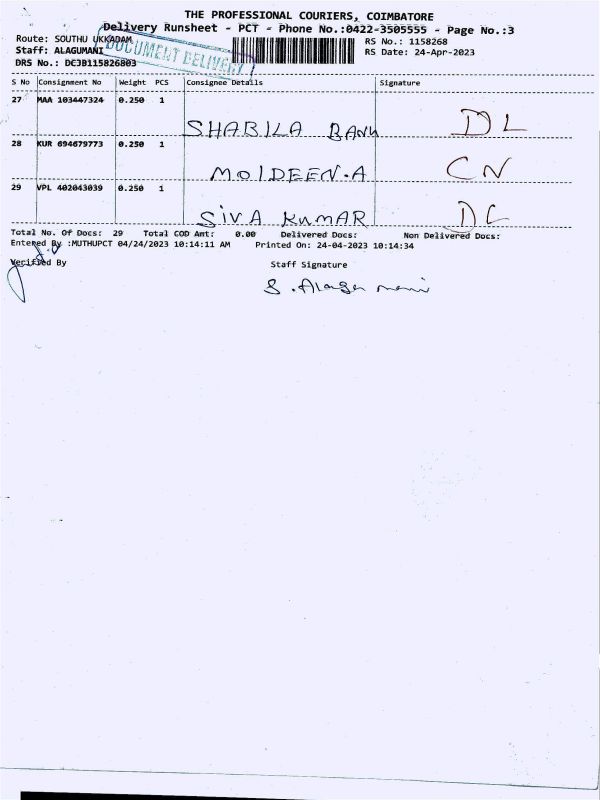 THE PROFESSIONAL COURIERS, COIMBATORE
Delivery Runsheet - PCT - Phone No.:0422-3505555 - Page No.:3
Route: SOUTHU UKKADAM RS No.: 1158268
Staff: ALAGUMANI RS Date: 24-Apr-2023
DOCUMENT DELIVERY
DRS No.: DCJB115826803
S No Consignment No Weight PCS Consignee Details Signature
27 MAA 103447324 0.250 1
SHABILA BANU DL
28 KUR 694679773 0.250 1
MOIDEEN.A CN
29 VPL 402043039 0.250 1
SIVA KUMAR DC
Total No. Of Docs: 29 Total COD Amt: 0.00 Delivered Docs: Non Delivered Docs:
Entered By :MUTHUPCT 04/24/2023 10:14:11 AM Printed On: 24-04-2023 10:14:34
Verified By Staff Signature
S.Alagu mani